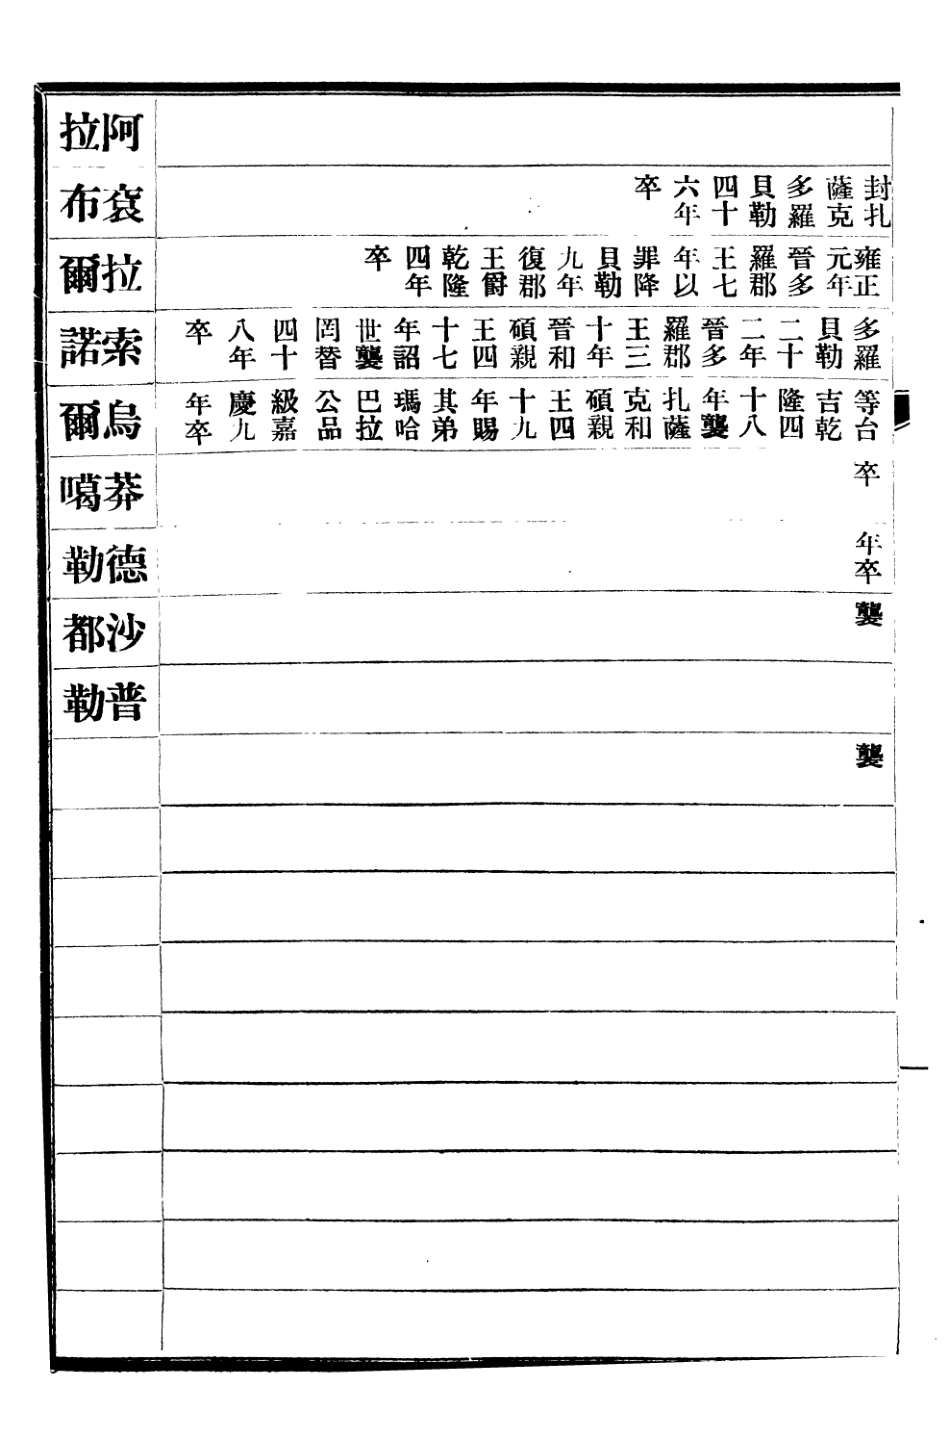 封扎
薩克
多羅
貝勒
四十
六年
卒
雍正
元年
晉多
羅郡
王七
年以
罪降
貝勒
九年
復郡
王爵
乾隆
四年
卒
多羅
貝勒
二十
二年
晉多
羅郡
王三
十年
晉和
碩親
王四
十七
年詔
世襲
罔替
四十
八年
卒
等台
吉乾
隆四
十八
年襲
扎薩
克和
碩親
王四
十九
年賜
其弟
瑪哈
巴拉
公品
級嘉
慶九
年卒
卒
年卒
襲
襲
阿
拉
袞
布
拉
爾
索
諾
烏
爾
莽
噶
德
勒
沙
都
普
勒